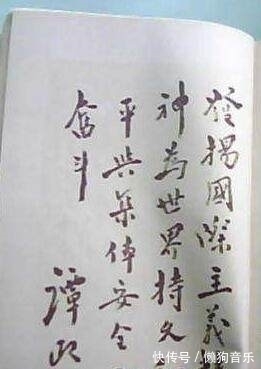 發揚國際主義
神為世界持久
平與集体安全
奋斗
譚政
快传号 / 懒狗音乐